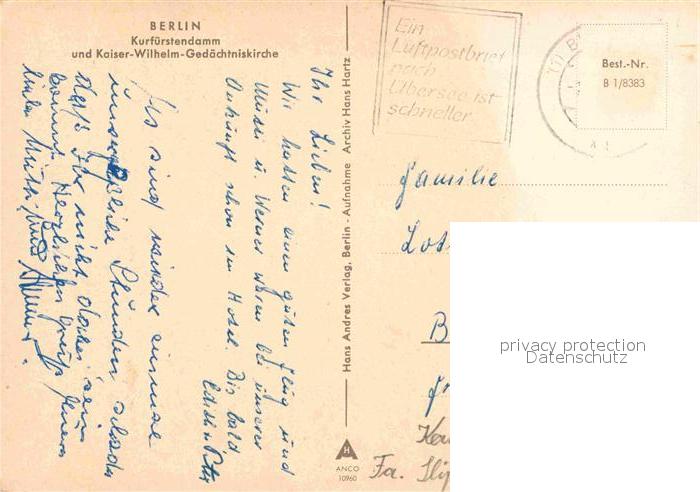 BERLIN
Kurfürstendamm
und Kaiser-Wilhelm-Gedächtniskirche
Ihr Lieben!
Wir hatten einen guten Flug und
Mutti u. Werner waren bei unserer
Ankunft schon im Hotel. Bis bald
Edith u. Peter
Es sind wieder einmal
Stunden schade
daß Ihr nicht dabei sein
könnt. Herzlichen Gruß
Hans Andres Verlag, Berlin - Aufnahme Archiv Hans Hartz
ANCO
10960
Ein
Luftpostbrief
nach
Übersee ist
schneller
Best.-Nr.
B 1/8383
Familie
Fa.
privacy protection
Datenschutz